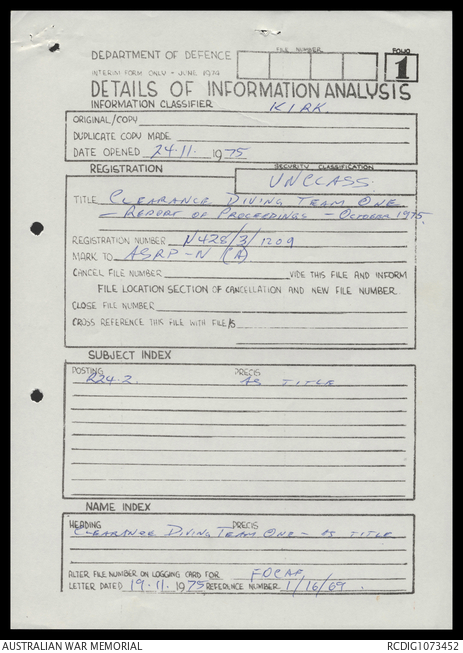 DEPARTMENT OF DEFENCE
FILE NUMBER
FOLIO
1
INTERIM FORM ONLY - JUNE 1974
DETAILS OF INFORMATION ANALYSIS
INFORMATION CLASSIFIER KIRK
ORIGINAL/COPY
DUPLICATE COPY MADE
DATE OPENED 24.11. 1975
REGISTRATION
SECURITY CLASSIFICATION
UNCLASS.
TITLE CLEARANCE DIVING TEAM ONE
- REPORT OF PROCEEDINGS - OCTOBER 1975.
REGISTRATION NUMBER N428/3/1209
MARK TO ASRP-N (A)
CANCEL FILE NUMBER VIDE THIS FILE AND INFORM
FILE LOCATION SECTION OF CANCELLATION AND NEW FILE NUMBER.
CLOSE FILE NUMBER
CROSS REFERENCE THIS FILE WITH FILE/S
SUBJECT INDEX
POSTING PRECIS
R24.2. AS TITLE
NAME INDEX
HEADING PRECIS
CLEARANCE DIVING TEAM ONE - AS TITLE
ALTER FILE NUMBER ON LOGGING CARD FOR FOCAF
LETTER DATED 19.11. 1975 REFERENCE NUMBER 1/16/69.
AUSTRALIAN WAR MEMORIAL
RCDIG1073452